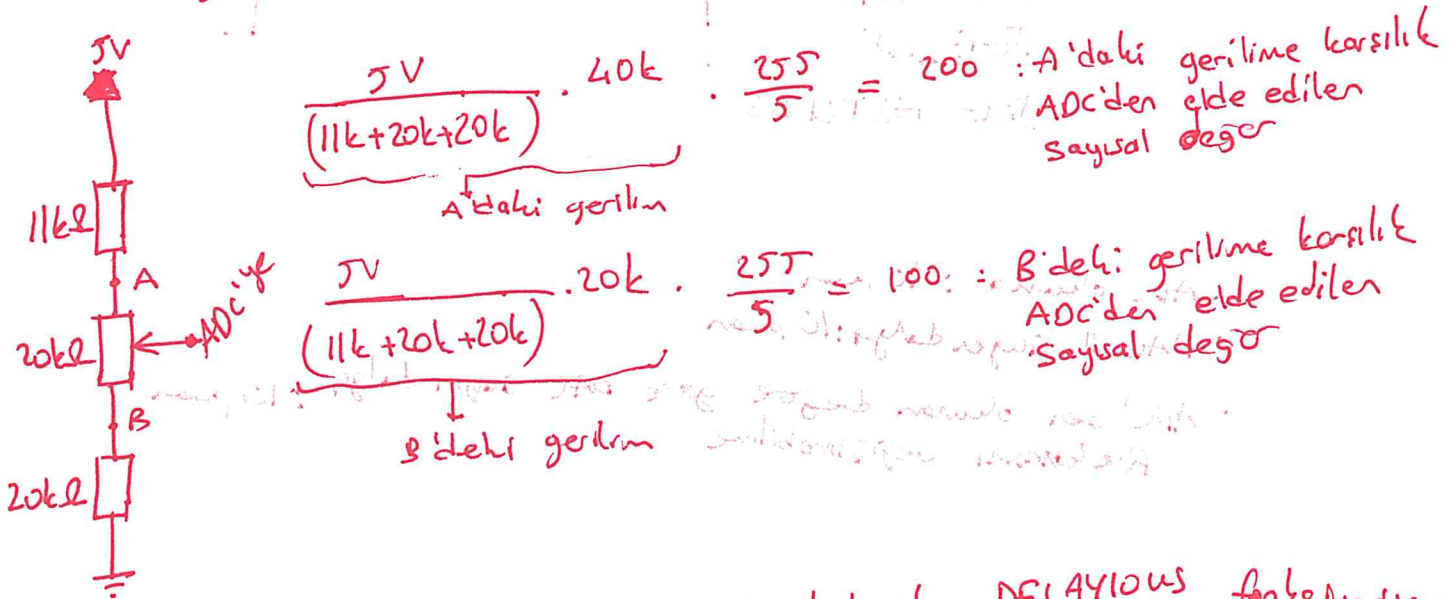 5V
11kΩ
A
20kΩ
ADC'ye
B
20kΩ
5V
(11k+20k+20k)
. 40k . 255
5
= 200 : A'daki gerilime karşılık
ADC'den elde edilen
sayısal değer
A'daki gerilim
5V
(11k+20k+20k)
. 20k . 255
5
= 100 : B'deki gerilime karşılık
ADC'den elde edilen
sayısal değer
B'deki gerilim
DELAY10US